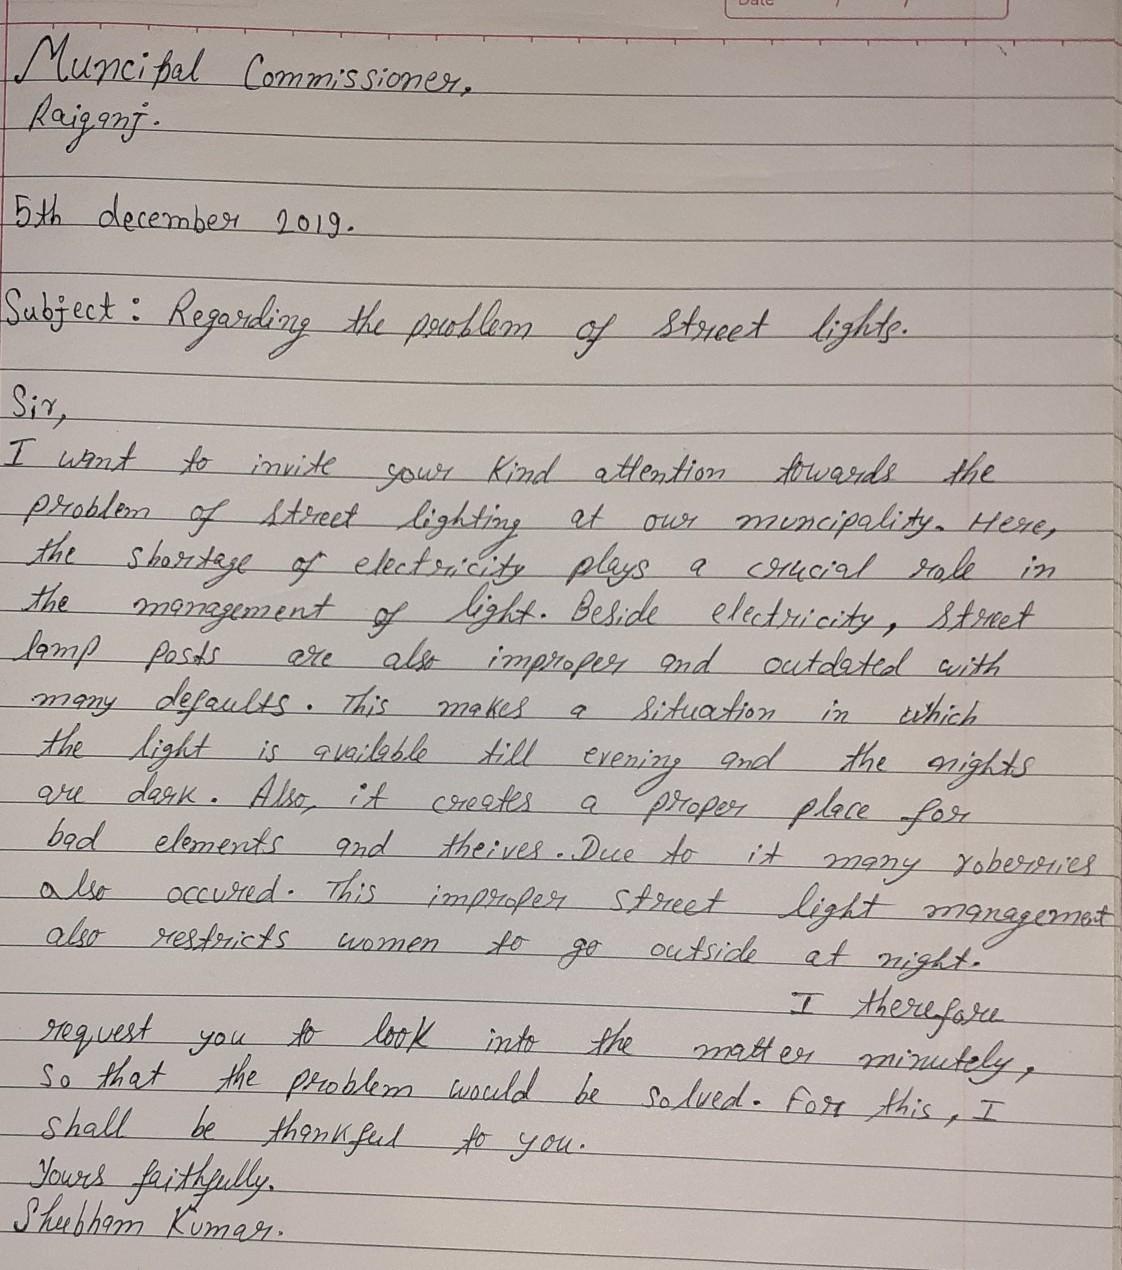 Date / /
Muncipal Commissioner,
Raiganj.
5th december 2019.
Subject: Regarding the problem of street lights.
Sir,
I want to invite your kind attention towards the
problem of street lighting at our muncipality. Here,
the shortage of electricity plays a crucial role in
the management of light. Beside electricity, street
lamp posts are also improper and outdated with
many defaults. This makes a situation in which
the light is available till evening and the nights
are dark. Also, it creates a proper place for
bad elements and theives. Due to it many roberries
also occured. This improper street light management
also restricts women to go outside at night.
I therefore
request you to look into the matter minutely,
so that the problem would be solved. For this, I
shall be thankful to you.
Yours faithfully.
Shubham Kumar.